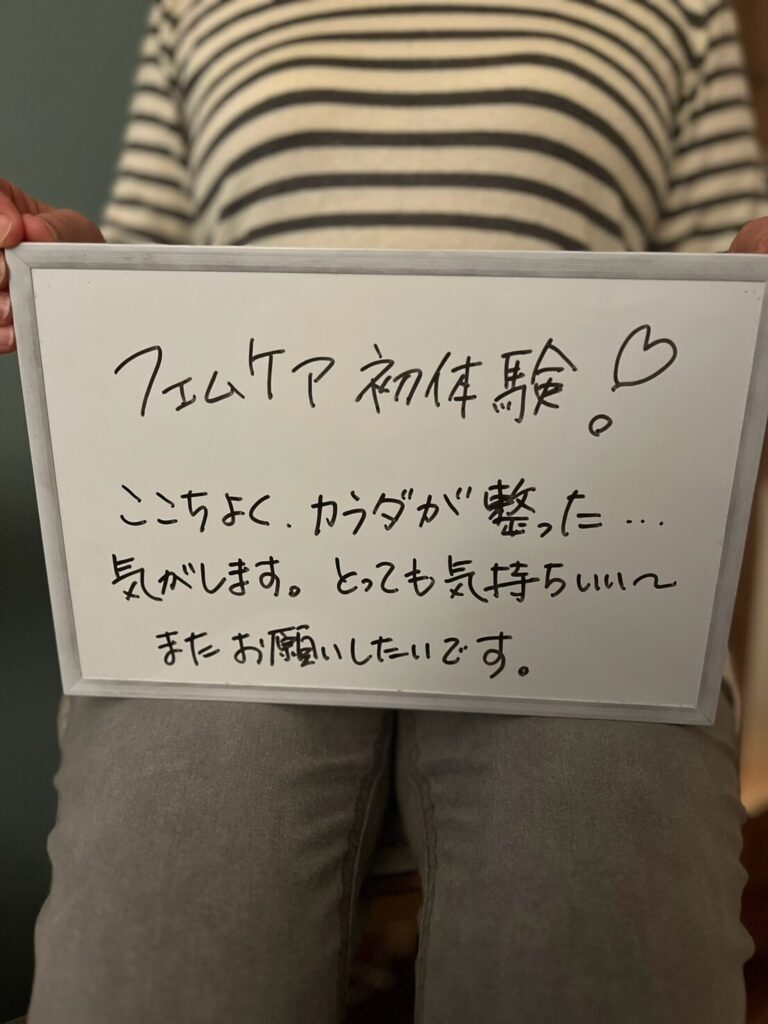 フェムケア 初体験!♡
ここちよく、カラダが 整った…
気がします。とっても気持ちいい〜
また お願いしたいです。